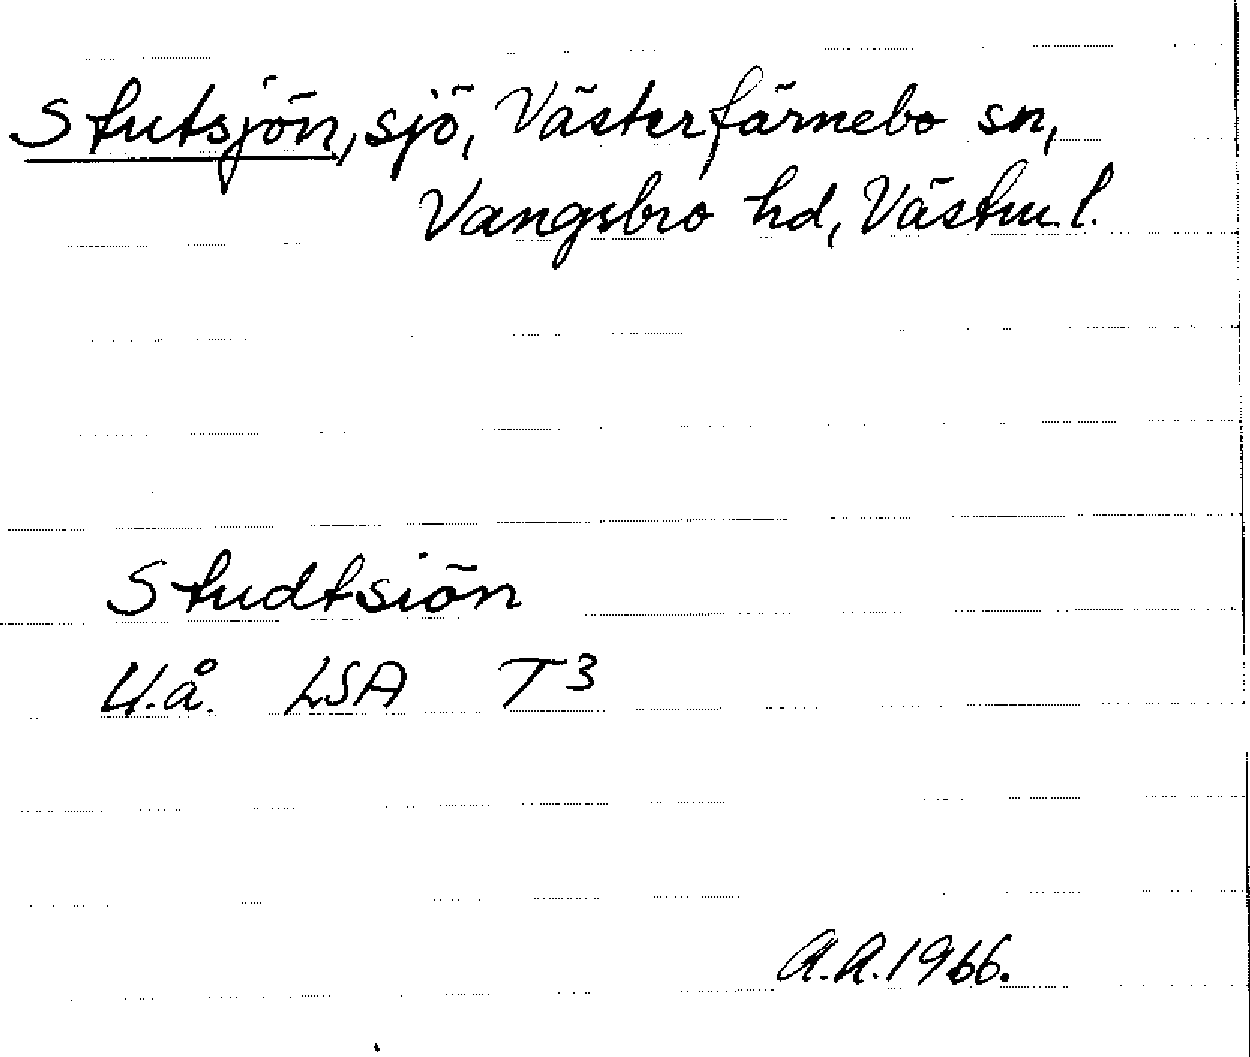 Stutsjön, sjö, Västerfärnebo sn,
Vangsbro hd, Västm. l.
Studtsiön
U.å. LSA T3
A.A. 1966.